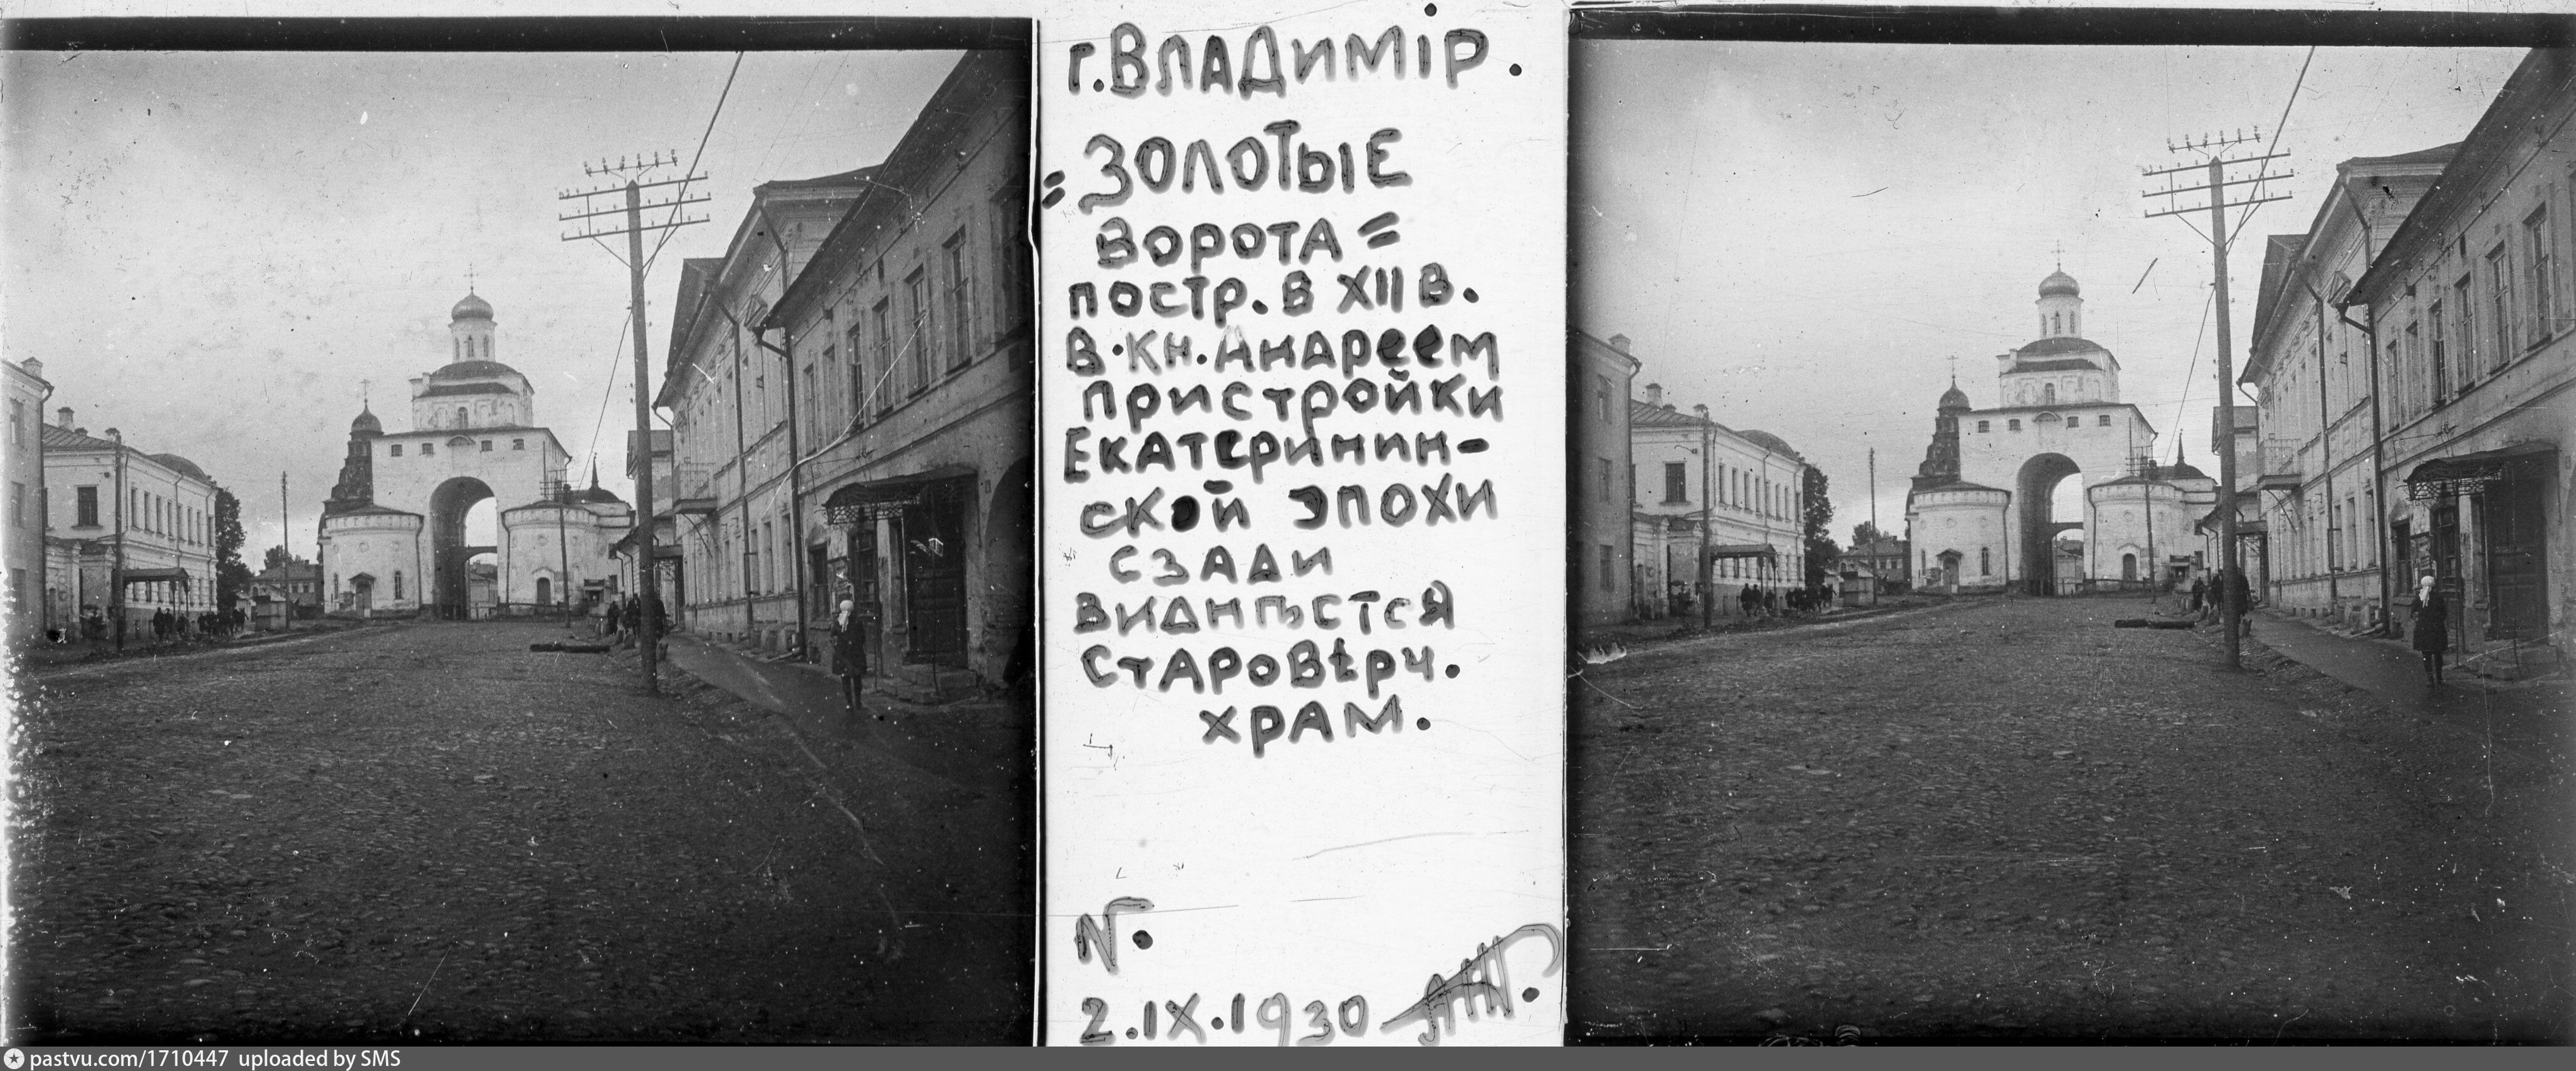 г. ВЛАДИМІР.
= ЗОЛОТЫЕ
ВОРОТА =
постр. в XII в.
В. Кн. Андреем
Пристройки
Екатеринин-
ской эпохи
сзади
виднѣется
старовѣрч.
храм.
N.
2.IX.1930
pastvu.com/1710447 uploaded by SMS